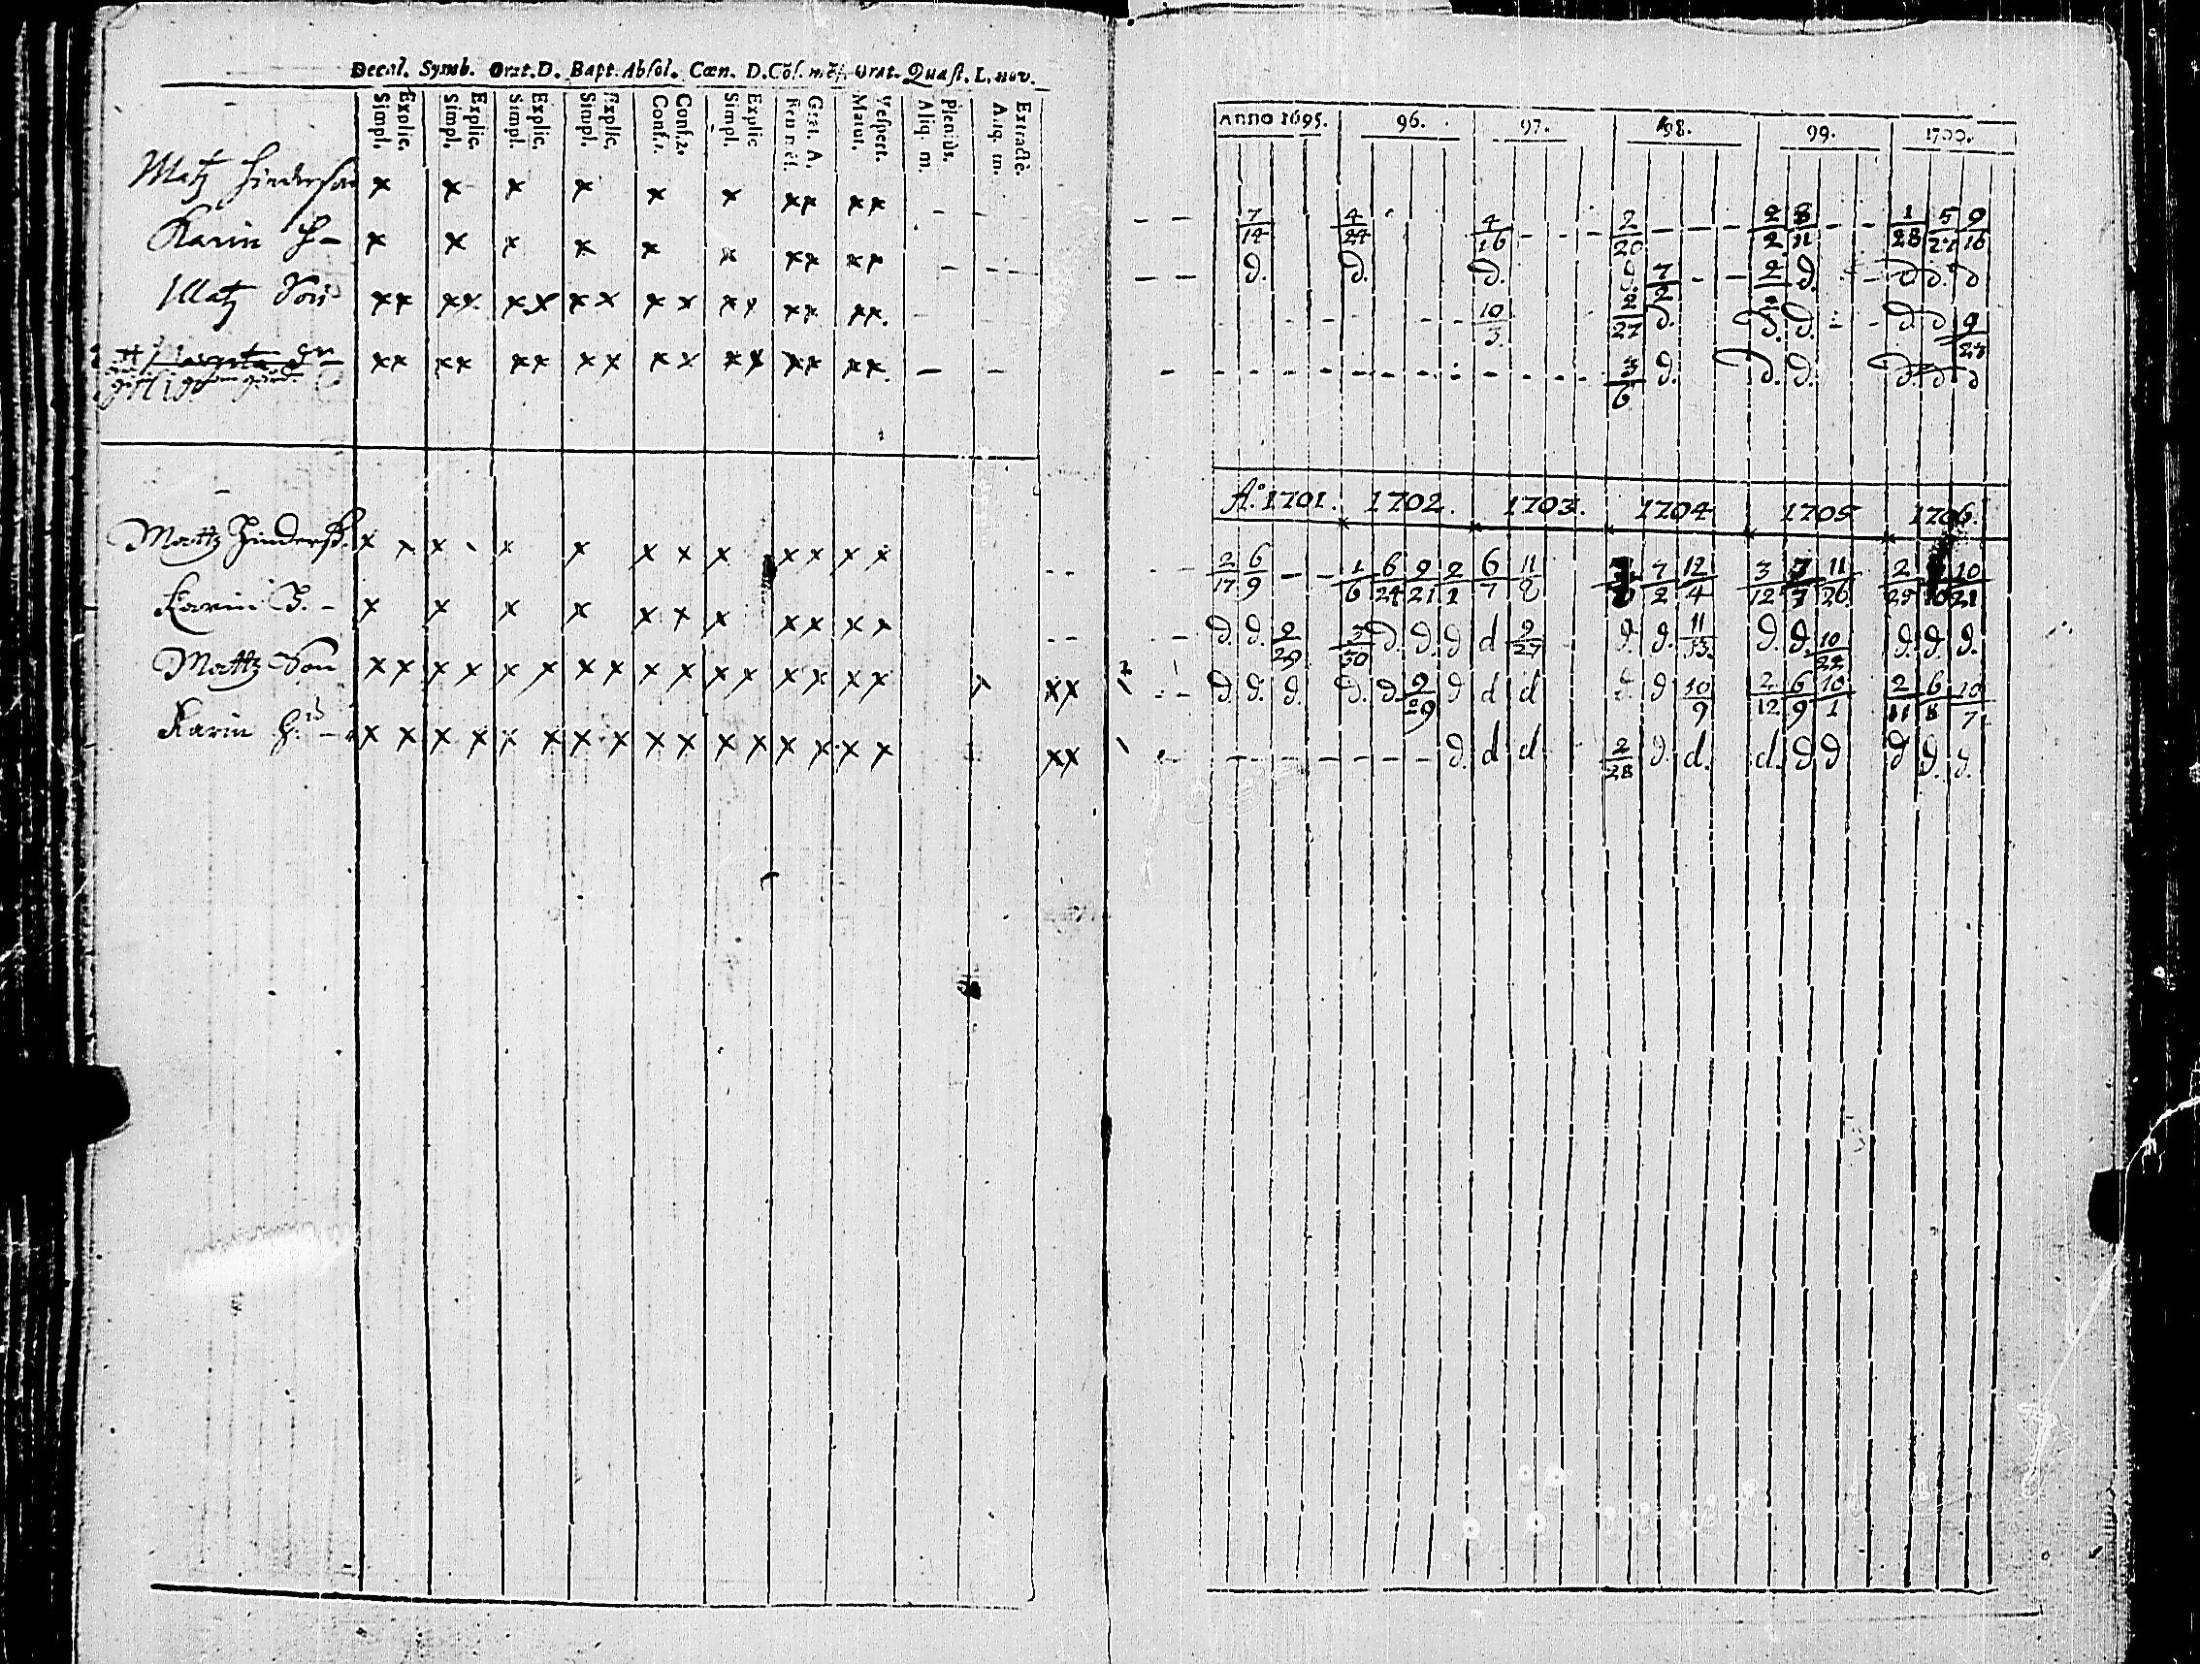 Decal. Symb. Orat. D. Bapt. Absol. Cœn. D. Cōf. mēſ. Orat. Quæſt. L. nov.
Simpl. Explic. Simpl. Explic. Simpl. Explic. Simpl. Explic. Confs. Confs2. Simpl. Explic Grat. A. Matut. Veſpert. Aliq. m. Pleniùs. Aliq. m. Extractè.
Matz Hinderson x x x x x x xx xx - -
Karin H - x x x x x x xx xx - - -
Matz Son xx xx xx xx xx xx xx xx. - - -
Margeta xx xx xx xx xx xx xx xx. - -
Mattz Hinderß. x x x x x x x x x x x x x
Karin H. - x x x x x x x x x x x
Mattz Son x x x x x x x x x x x x x x x x x xx
Karin H. - x x x x x x x x x x x x x x x x xx
Anno 1695. 96. 97. 98. 99. 1700.
- - 7/14 4/24 4/16 - - - 2/20 - - - 2/2 8/11 - - 1/28 5/21 9/16
- - d. d. d. d. 7/2 - - 2/2 d. - d d. d
- - - - - - 10/3 2/27 d. d. d. - - d. d 9/23
- - - - - - - - - - 3/6 d. d. d. d. d d
A:o 1701. 1702. 1703. 1704 1705 1706.
2/17 6/9 - - 1/6 6/24 9/21 2/1 6/7 11/8 7/2 12/4 3/12 7/3 11/26 2/25 10/21
d. d. 9/29 3/30 d. d. d d 9/27 d. d. 11/13. d. d. 10/22 d. d. d.
d. d. d. d. d. 9/29 d d d d d 10/9 2/12 6/9 10/1 2/11 6/8 10/7
- - - - - - - d. d d 2/28 d. d. d. d d d d. d.